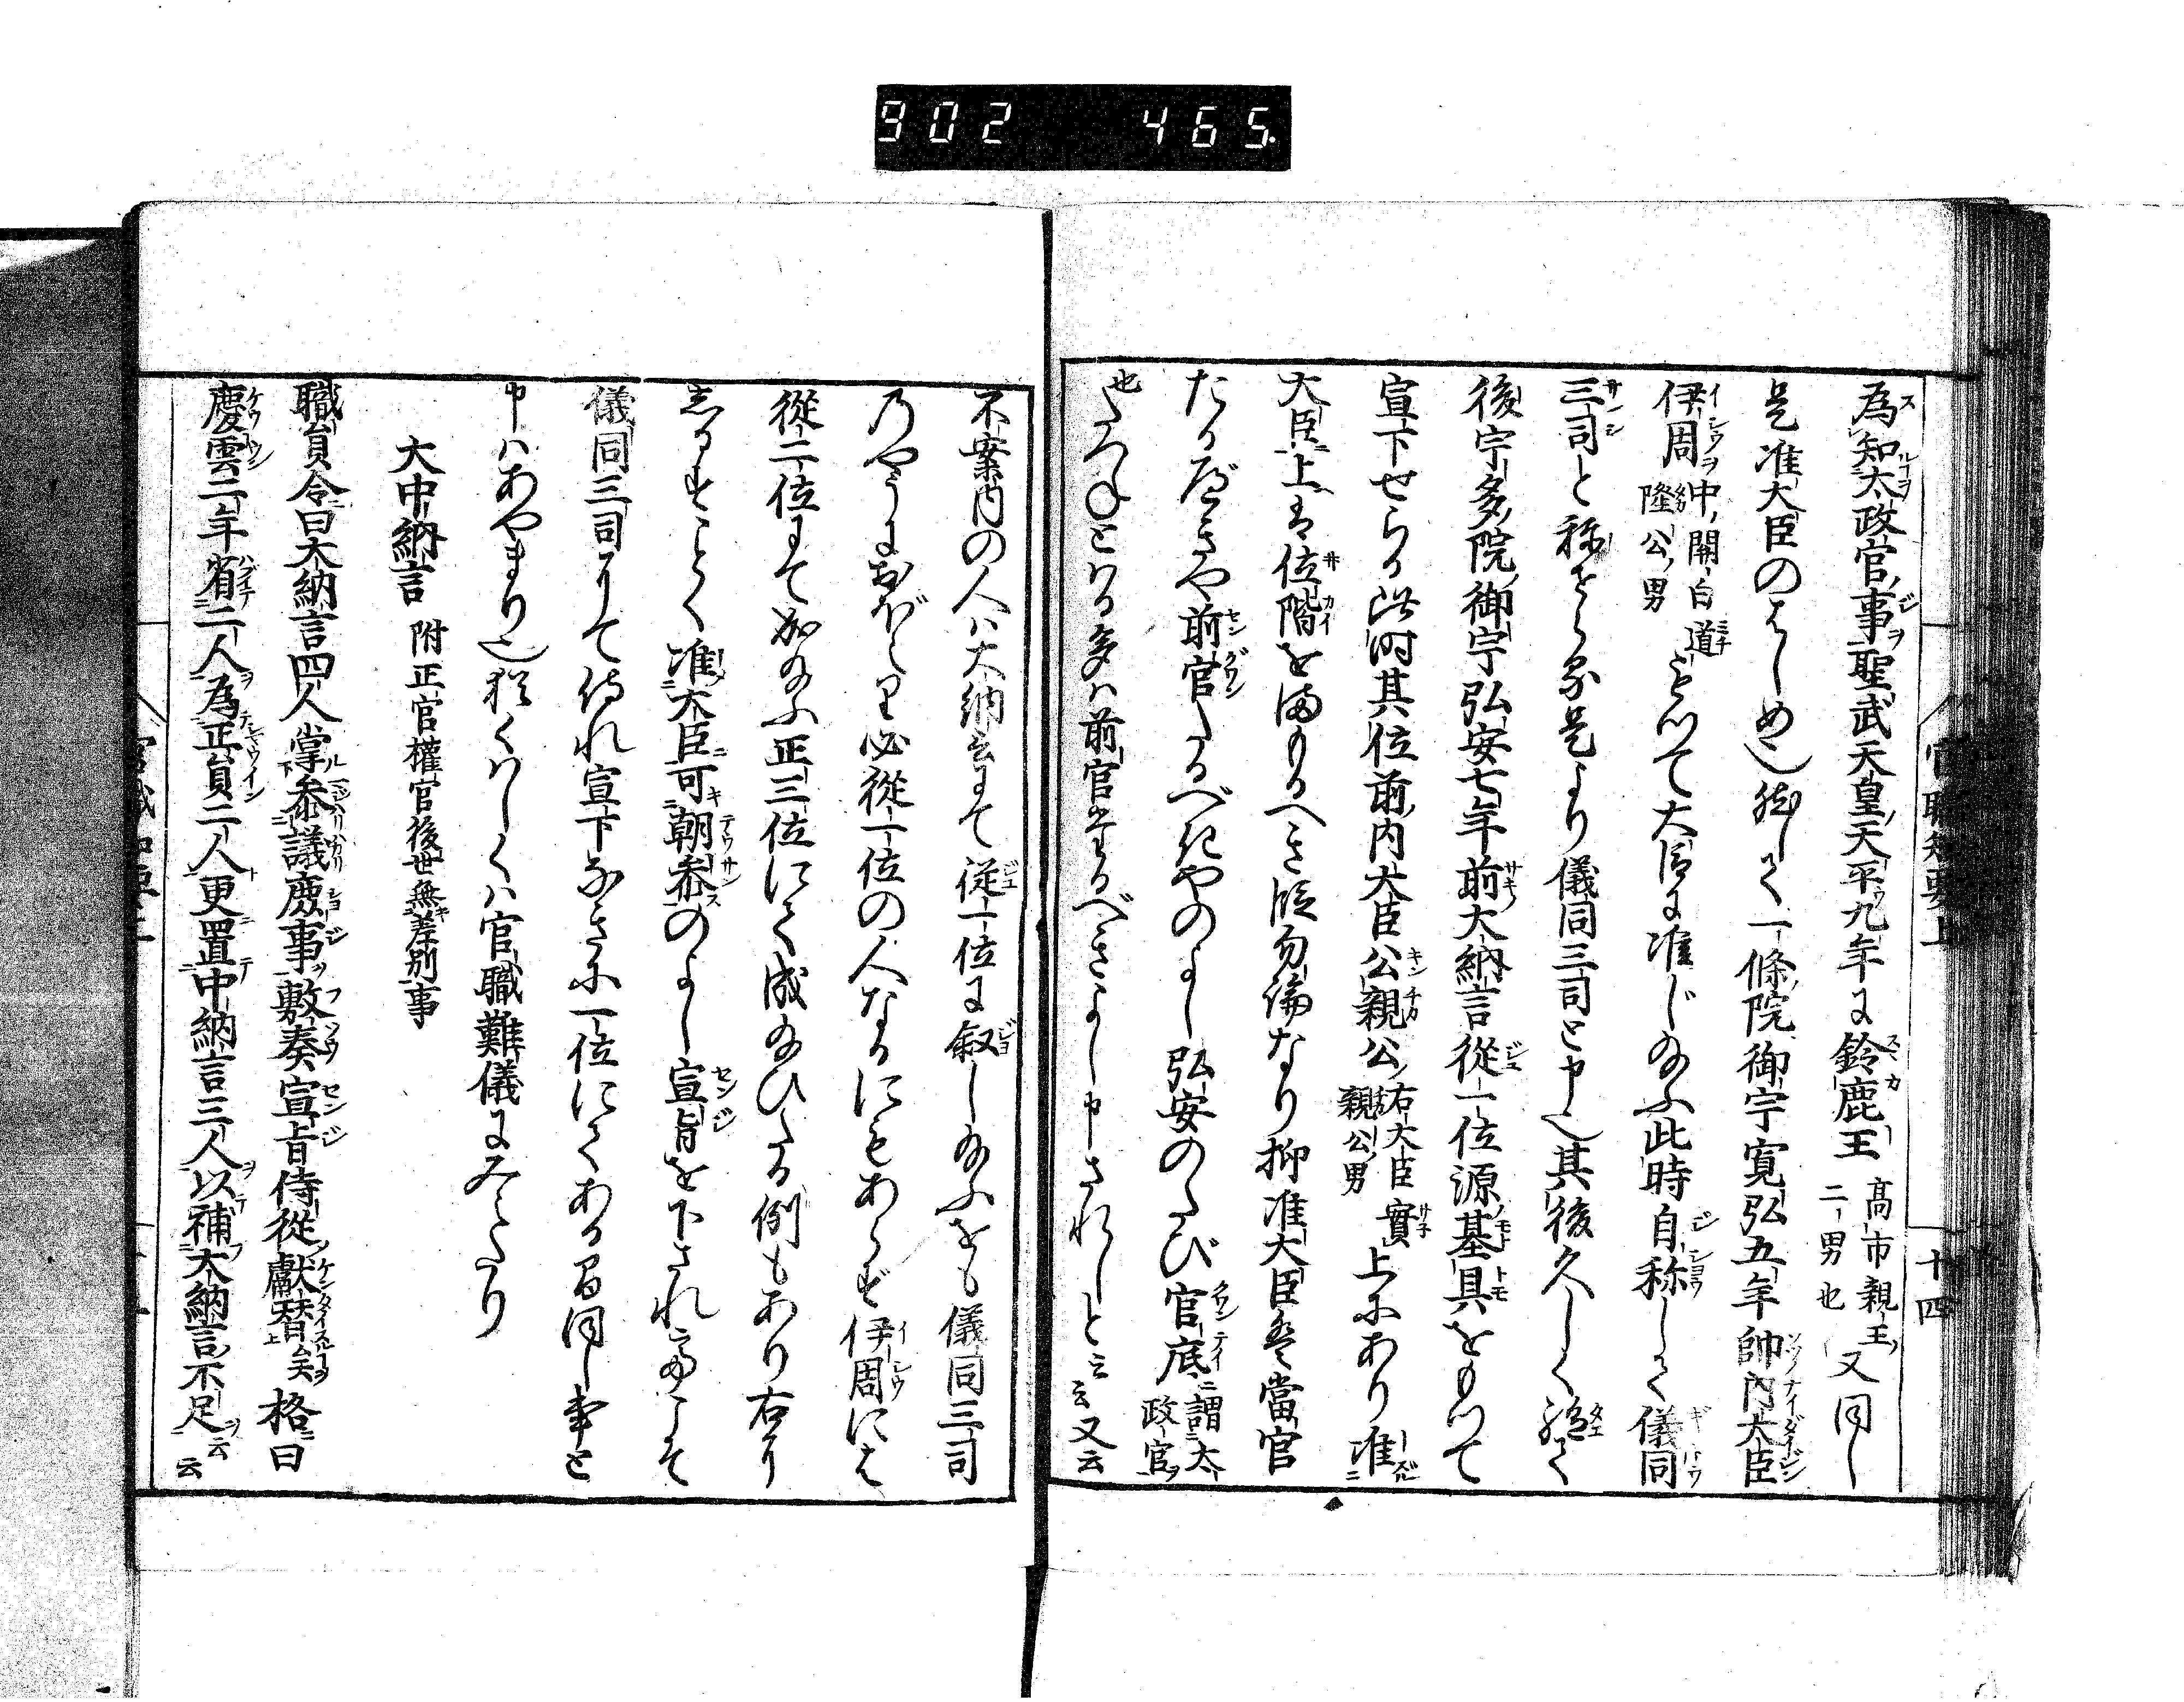 902 465.
官職知要上 十四
為知太政官事聖武天皇天平九年に鈴鹿王高市親王二男也又同し
是准大臣のはしめ也然して一條院御宇寛弘五年帥内大臣
伊周中関白道隆公男をもつて大臣に准じ給ふ此時自称して儀同
三司と称せらる是より儀同三司と申也其後久しく絶て
後宇多院御宇弘安七年前大納言從一位源基具をもつて
宣下せらる此時其位前内大臣公親公右大臣實親公男上にあり准
大臣上は位階を守るへき段勿論なり抑准大臣是當官
たるべきや前官たるべきやのよし弘安のたび官底謂太政官
也たづねとはる多は前官たるべきよし申されしと云云又云
不案内の人は大納言にて従一位に叙し給ふをも儀同三司
のやうにおぼえり必從一位の人なるにもあらず伊周には
從二位にて給ふ正三位にて成給ひたる例もあり右
しるすことく准大臣可朝参のよし宣旨を下されてこそ
儀同三司にて侍れ宣下なきに一位にてあるを同し事と
申はあやまり也猶くはしくは官職難儀にみえたり
大中納言 附正官權官後世無差別事
職員令曰大納言四人掌参議庶事敷奏宣旨侍從獻替矣 格曰
慶雲二年省二人為正員二人更置中納言三人以補大納言不足云云